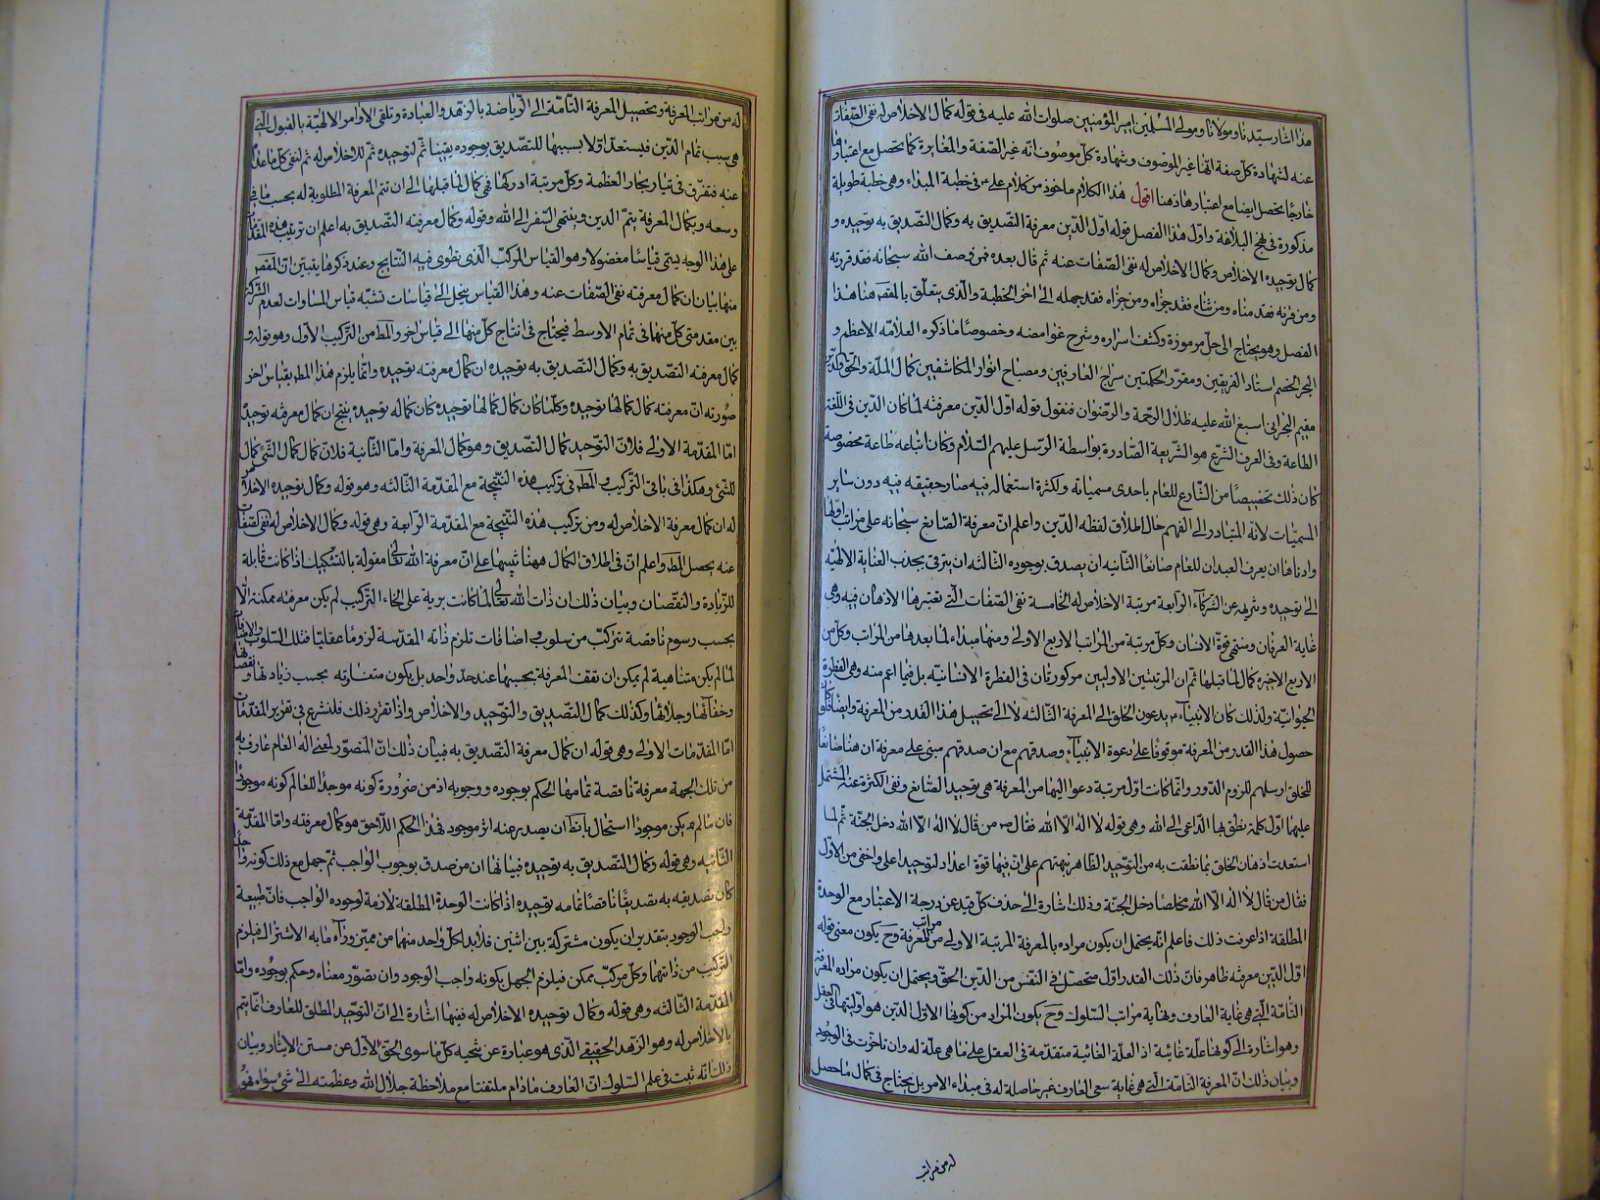 هذا اشار سيدنا ومولانا ومولى المسلمين امير المؤمنين صلوات الله عليه فى قوله كمال الاخلاص له نفى الصفات
عنه لشهادة كل صفة انها غير الموصوف وشهادة كل موصوف انه غير الصفة والمغايرة كما يحصل مع اعتبارها
خارجا يحصل ايضا مع اعتبارها ذهنا اقول هذا الكلام ماخوذ من كلام على ع فى خطبة المبداء وهى خطبة طويلة
مذكورة فى نهج البلاغة واول هذا الفصل قوله اول الدين معرفة التصديق به وكمال التصديق به توحيده و
كمال توحيده الاخلاص وكمال الاخلاص له نفى الصفات عنه ثم قال بعده فمن وصف الله سبحانه فقد قرنه
ومن قرنه فقد مناه ومن ثناه فقد جزاه ومن جزاه فقد جهله الى اخر الخطبة والذى يتعلق بالمقصد هنا هذا
الفصل وهو يحتاج الى حل مرموزة وكشف اسراره وشرح غوامضه وخصوصا ما ذكره العلامه الاعظم و
البحر الخضم استاد الفريقين ومقرر الحكمتين سراج العارفين ومصباح انوار المكاشفين كمال الملة والحق والدين
ميثم البحرانى اسبغ الله عليه ظلال الرحمة والرضوان فنقول قوله اول الدين معرفته لما كان الدين فى اللغة
الطاعة وفى العرف الشرع هو الشريعة الصادرة بواسطة الرسل عليهم السلام وكان اتباعه طاعة مخصوصة
كان ذلك تخصيصا من الشارع للعام باحدى مسمياته ولكثرة استعماله فيه صار حقيقه فيه دون ساير
المسميات لانه المتبادر الى الفهم حال اطلاق لفظه الدين واعلم ان معرفة الصانع سبحانه على مراتب اولها
وادناها ان يعرف العبد ان للعام صانعا الثانيه ان يصدق بوجوده الثالثه ان يترقى بجذب العناية الالهية
الى توحيده وتنزيهه عن الشركاء الرابعة مرتبة الاخلاص له الخامسة نفى الصفات التى تعتبرها الاذهان فيه وهى
غاية العرفان ومنتهى قوة الانسان وكل مرتبة من المراتب الاربع الاولى ومنها مبداء لما بعدها من المراتب وكل من
الاربع الاخيرة كمال لما قبلها ثم ان المرتبتين الاوليين مركوزتان فى الفطرة الانسانية بل فيما اعم منه وهى الفطرة
الحيوانية ولذلك كان الانبياء ع يدعون الخلق الى المعرفة الثالثه لا الى تحصيل هذا القدر من المعرفة وايضا فلو كان
حصول هذا القدر من المعرفة موقوفا على دعوة الانبياء وصدقهم مع ان صدقهم مبنى على معرفة ان هنا صانعا
للخلق ارسلهم للزوم الدور وانما كانت اول مرتبة دعوا اليها من المعرفة هى توحيد الصانع ونفى الكثرة عنه المشتمل
عليها اول كلمة نطق بها الداعى الى الله وهى قوله لا اله الا الله فقال ص من قال لا اله الا الله دخل الجنة ثم لما
استعدت اذهان الخلق بما نطقت به من التوحيد الظاهر نبههم على ان فيها قوة اعداد لتوحيد اعلى واخفى من الاول
فقال من قال لا اله الا الله مخلصا دخل الجنة وذلك اشارة الى حذف كل قيد عن درجة الاعتبار مع الوحدة
المطلقة اذا عرفت ذلك فاعلم انه يحتمل ان يكون مراده بالمعرفة المرتبة الاولى من مراتب المعرفة وح يكون معنى قوله
اول الدين معرفته ظاهر فان ذلك القدر اول متحصل فى النفس من الدين الحق ويحتمل ان يكون مراده المعرفة
التامة التى هى غاية العارف ونهاية مراتب السلوك وح يكون المراد من كونها الاول الدين هو اوليتها فى العقل
وهو اشارة الى كونها علة غائية اذ العلة الغائية متقدمة فى العقل على ما هى علة له وان تاخرت فى الوجود
وبيان ذلك ان المعرفة التامة التى هى غاية سعى العارف غير حاصلة له فى مبداء الامر بل يحتاج فى كمال ما حصل
له من مراتب
له من مراتب المعرفة وتحصيل المعرفة التامة الى الرياضة بالزهد والعبادة وتلقى الاوامر الالهية بالقبول التى
هى سبب تمام الدين فيستعد اولا بسببها للتصديق بوجوده يقينا ثم لتوحيده ثم للاخلاص له ثم لنفى كل ما عداه
عنه فتغرق فى تيار بحار العظمة وكل مرتبة ادركها فهى كمال لما قبلها الى ان تتم المعرفة المطلوبة له بحسب ما فى
وسعه وبكمال المعرفة يتم الدين وينتهى السفر الى الله وقوله وكمال معرفته التصديق به اعلم ان ترتيب هذه المقدمات
على هذا الوجه يسمى قياسا مفصولا وهو القياس المركب الذى تطوى فيه النتايج وعند ذكرها يتبين ان المقصد
منها بيان ان كمال معرفته نفى الصفات عنه وهذا القياس ينحل الى قياسات تشبه قياس المساوات لعدم الشركة
بين مقدمتى كل منهما فى تمام الاوسط فيحتاج فى انتاج كل منهما الى قياس اخر والمط من التركيب الاول وهو قوله و
كمال معرفته التصديق به وكمال التصديق به توحيده ان كمال معرفته توحيده وانما يلزم هذا المط بقياس اخر
صورته ان معرفته كمال كمالها توحيده وكلما كان كمال كمالها توحيده كان كماله توحيده ينتج ان كمال معرفته توحيده
اما المقدمة الاولى فلان التوحيد كمال التصديق وهو كمال المعرفة واما الثانية فلان كمال كمال الشئ كمال
للشئ وهكذا فى باقى التركيب والمط فى تركيب هذه النتيجة مع المقدمة الثالثه وهو قوله وكمال توحيده الاخلاص
له ان كمال معرفة الاخلاص له ومن تركيب هذه النتيجة مع المقدمة الرابعة وهى قوله وكمال الاخلاص له نفى الصفات
عنه يحصل المط واعلم ان فى اطلاق الكمال ههنا تنبيها على ان معرفة الله تعالى مقولة بالتشكيك اذ كانت قابلة
للزيادة والنقصان وبيان ذلك ان ذات الله تعالى لما كانت برية على انحاء التركيب لم يكن معرفته ممكنة الا
بحسب رسوم ناقصة تتركب من سلوب واضافات تلزم ذاته المقدسة لزوما عقليا فتلك السلوب والاضافات
لما لم يكن متناهية لم يمكن ان تقف المعرفة بحسبها عند حد واحد بل يكون متفاوته بحسب زيادتها ونقصانها
وخفائها وجلائها وكذلك كمال التصديق والتوحيد والاخلاص واذا تقرر ذلك فلنشرع فى تقرير المقدمات
اما المقدمات الاولى وهى قوله ان كمال معرفة التصديق به فبيان ذلك ان المتصور لمعنى اله العام عارف به
من تلك الجهة معرفة ناقصة تمامها الحكم بوجوده ووجوبه اذ من ضرورة كونه موجدا للعالم كونه موجودا
فان ما لم يكن موجودا استحال ان يصدر عنه اثر موجود فهذا الحكم اللاحق هو كمال معرفته واما المقدمة
الثانيه وهى قوله وكمال التصديق به توحيده فبيانها ان من صدق بوجوب الواجب ثم جهل مع ذلك كونه واحدا
كان تصديقه به تصديقا ناقصا تمامه توحيده اذا كانت الوحدة المطلقة لازمة لوجوده الواجب فان طبيعة
واجب الوجود بتقدير ان يكون مشتركة بين اثنين فلابد لكل واحد منهما من مميز وراء ما به الاشتراك فيلزم
التركيب من ذاتيهما وكل مركب ممكن فيلزم الجهل بكونه واجب الوجود وان تصور معناه وحكم بوجوده واما
المقدمة الثالثه وهى قوله وكمال توحيده الاخلاص له ففيها اشارة الى ان التوحيد المطلق للعارف انما يتم
بالاخلاص له وهو الزهد الحقيقى الذى هو عبارة عن تنحيه كل ما سوى الحق الاول عن مستن الايثار وبيان
ذلك انه ثبت فى علم السلوك ان العارف مادام ملتفتا مع ملاحظة جلال الله وعظمته الى شئ سواه فهو